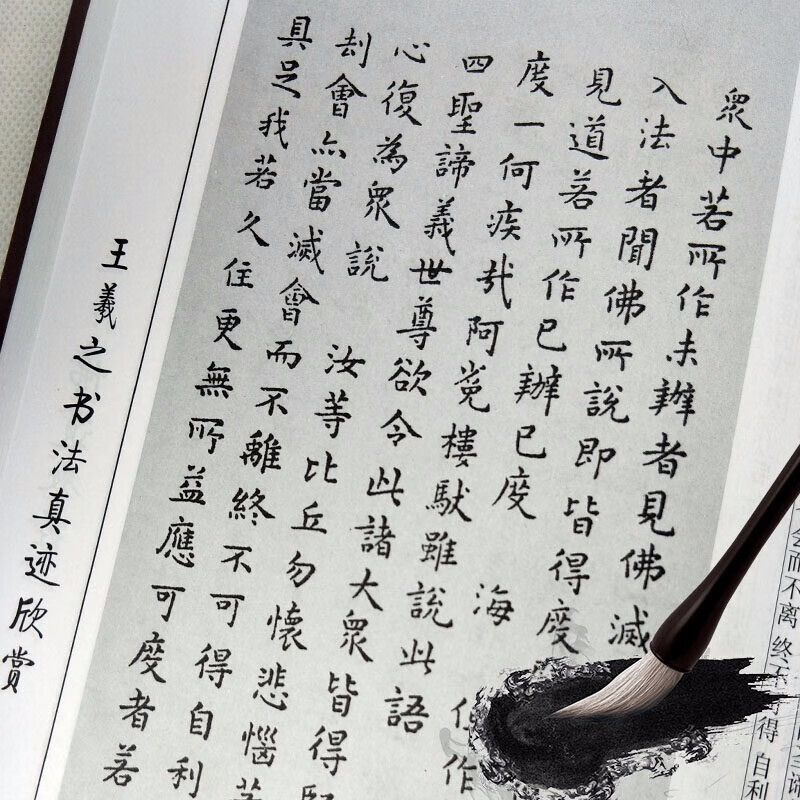 衆中若所作未辦者見佛滅
入法者聞佛所說即皆得度
見道若所作已辦已度海
度一何疾哉阿㝹樓馱雖說此語
四聖諦義世尊欲令此諸大衆皆得
心復為衆說汝等比丘勿懷悲惱若
刦會亦當滅會而不離終不可得自利
具足我若久住更無所益應可度者若
王羲之书法真迹欣赏
会而不离 终不 得 自利